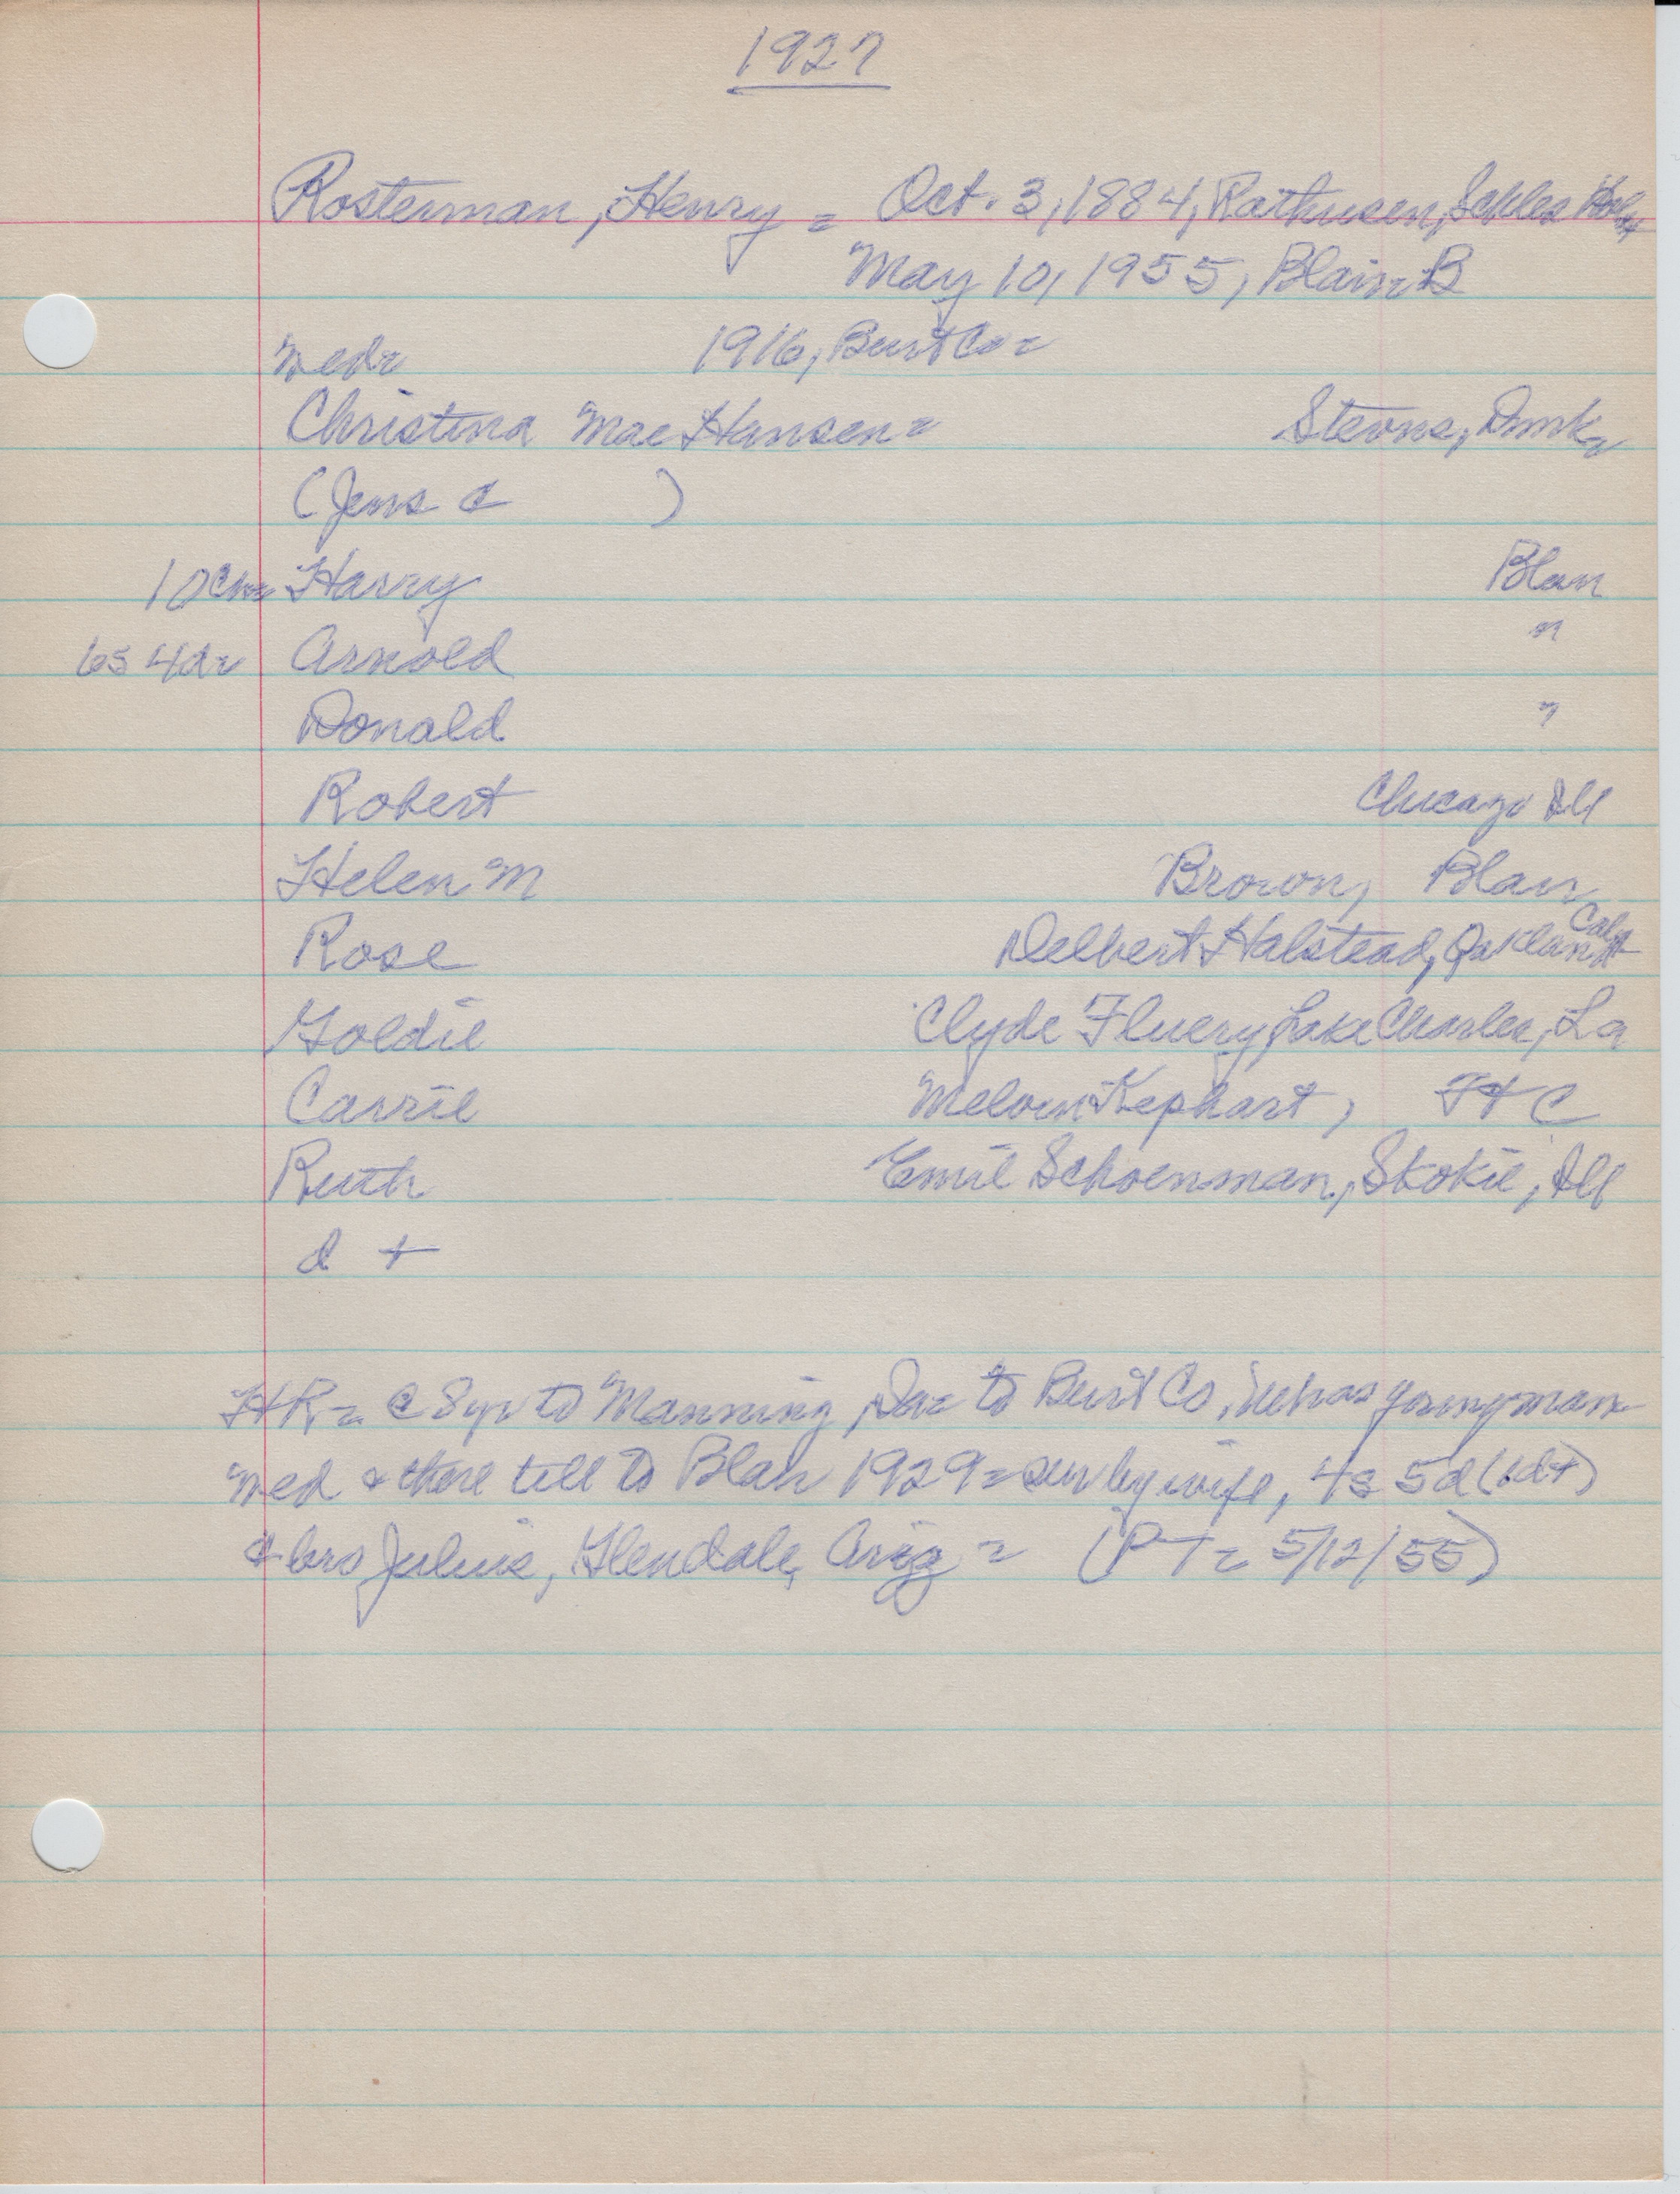 1927
Rosterman, Henry = Oct. 3, 1884, Rathusen, Schles Hols
May 10, 1955, Blair B
wedr 1916, Burt Co =
Christina Mae Hansen = Stevns, Dmk
(Jens C )
10 chr Harry Blair
6s 4dr Arnold "
Donald "
Robert Chicago Ill
Helen M Brown, Blair
Rose Delbert Halstead, Oakland Calif
Goldie Clyde Fluery, Lake Charles, La
Carrie Melvin Kephart, Ft C
Ruth Emil Schoenman, Skokie, Ill
d +
HR = @ 8 yr to Manning, Ia = to Burt Co, Neb as young man
wed & there till to Blair 1929 = surv by wife, 4s 5d (1d+)
& bro Julius, Glendale, Ariz = (PT = 5/12/55)